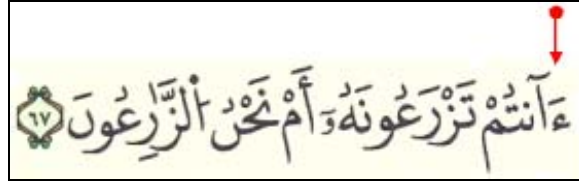 ءَآنتُمْ تَزْرَعُونَهُۥٓ أَمْ نَحْنُ ٱلزَّٰرِعُونَ ٦٧